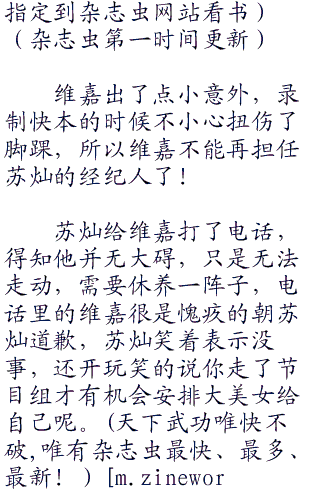 指定到杂志虫网站看书）
（杂志虫第一时间更新）
维嘉出了点小意外，录
制快本的时候不小心扭伤了
脚踝，所以维嘉不能再担任
苏灿的经纪人了！
苏灿给维嘉打了电话，
得知他并无大碍，只是无法
走动，需要休养一阵子，电
话里的维嘉很是愧疚的朝苏
灿道歉，苏灿笑着表示没
事，还开玩笑的说你走了节
目组才有机会安排大美女给
自己呢。(天下武功唯快不
破,唯有杂志虫最快、最多、
最新！)[m.zinewor